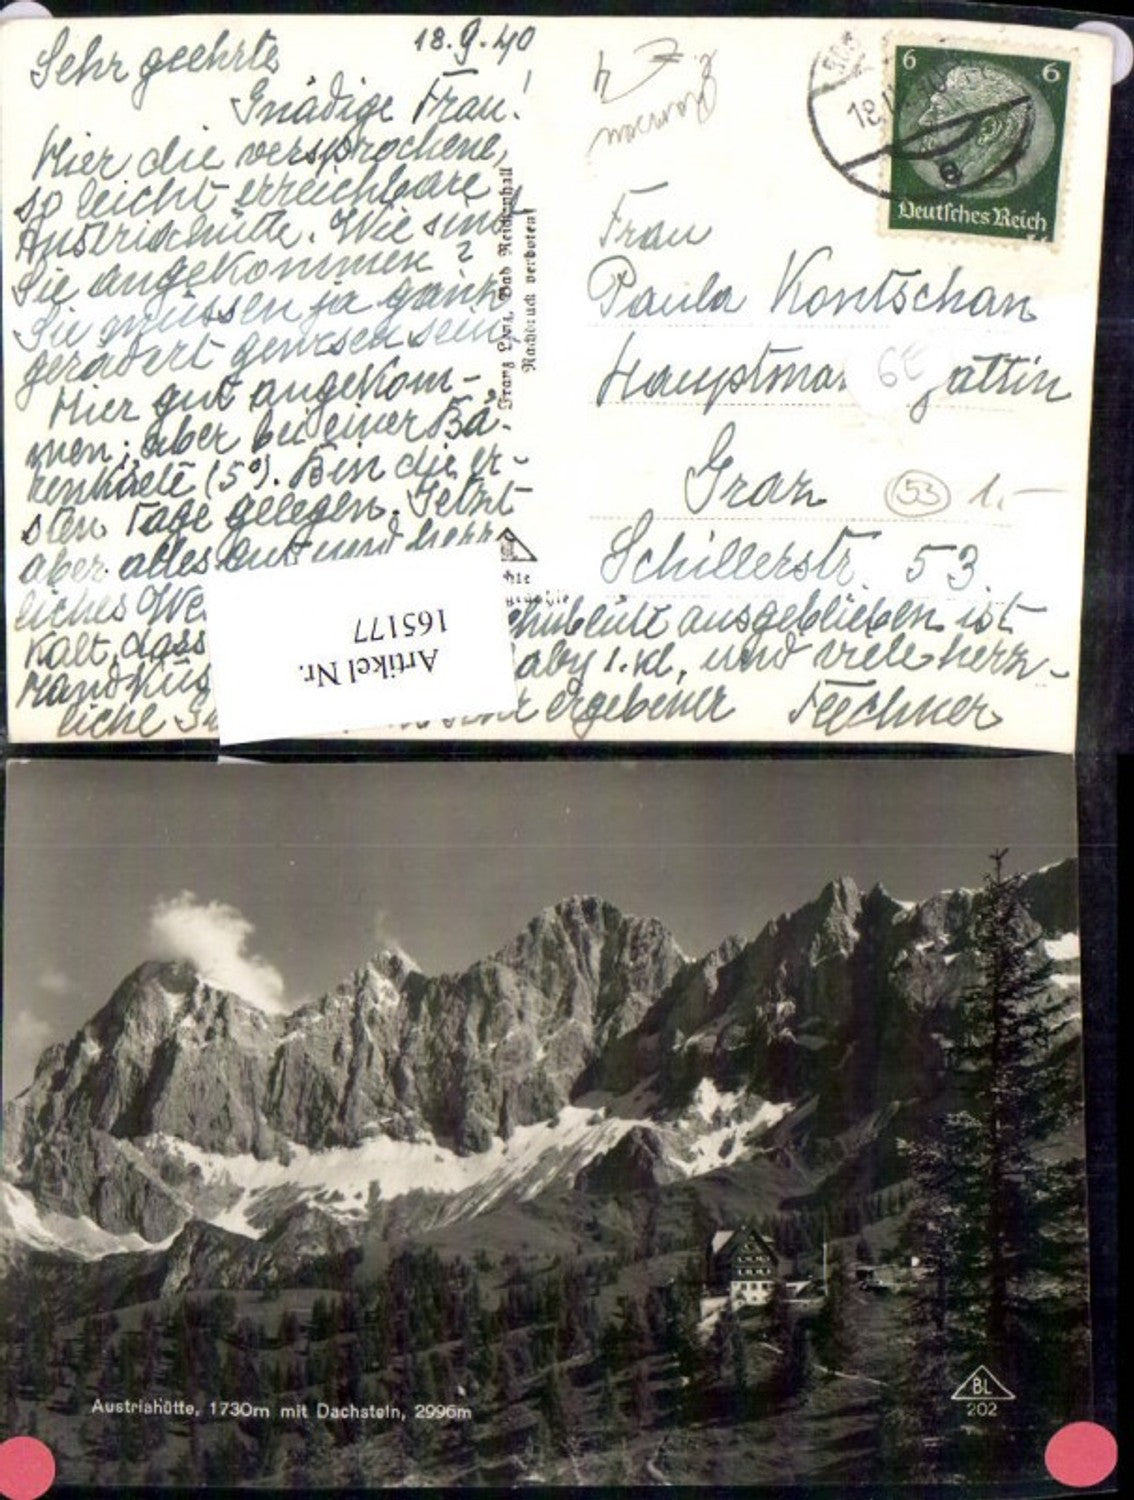 18.9.40
Sehr geehrte
Gnädige Frau!
Hier die versprochene,
so leicht erreichbare
Austriahütte. Wie sind
Sie angekommen?
Sie müssen ja ganz
gerädert gewesen sein.
Hier gut angekom-
men; aber bei einer Bä-
renkälte (5°). Bin die er-
sten Tage gelegen. Jetzt
aber alles gut und herr-
liches We
Kalt, dass ausgeblieben ist
Handküs 1. Kl. und viele herz-
liche ergebener
Franz Bad Reichenhall
Nachdruck verboten!
6 6
Deutsches Reich
18.
a
Frau
Paula Kontschan
Hauptma gattin
Graz
53 1.-
Schillerstr. 53
Artikel Nr.
165177
Austriahütte, 1730m mit Dachstein, 2996m
BL
202